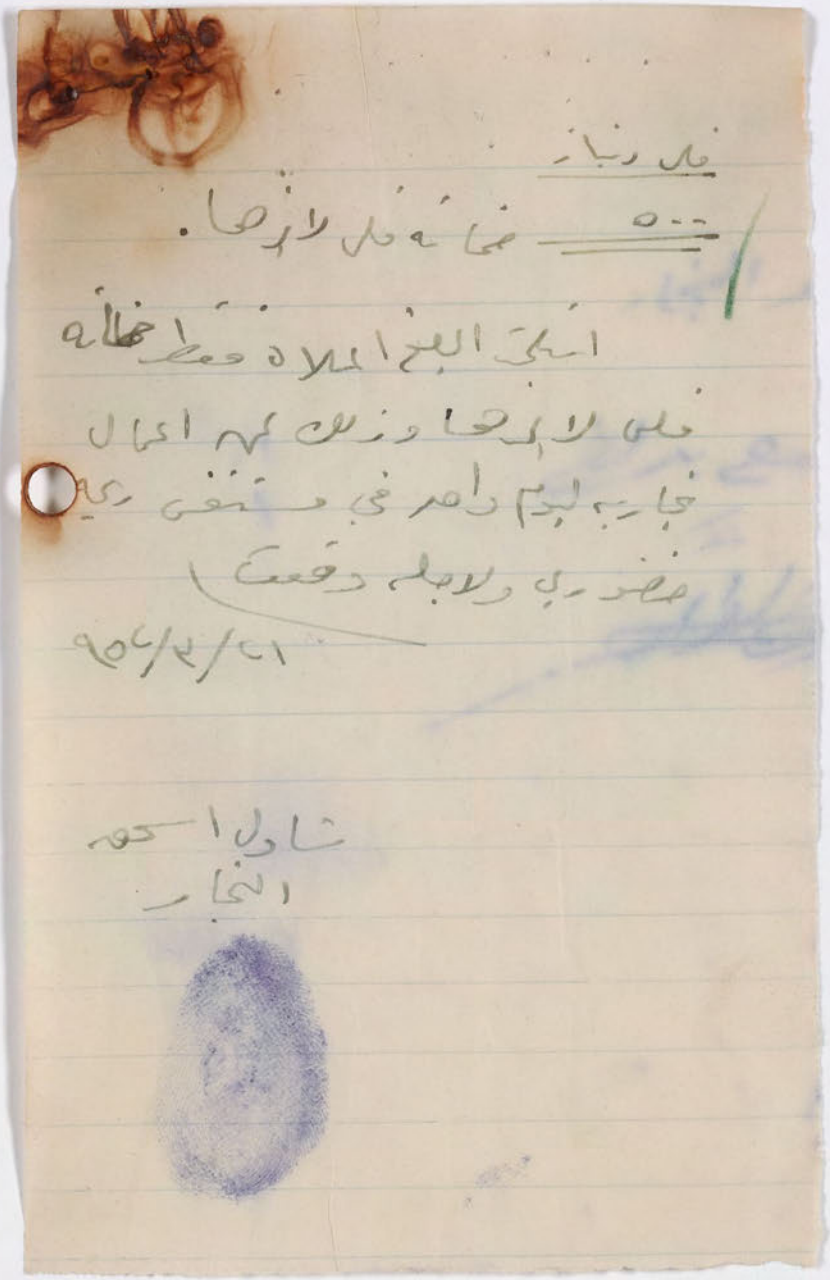 فلس دينار
٥٠٠ خمسمائة فلس لاغيرها.
استلمت المبلغ اعلاه فقط خمسمائة
فلس لاغيرها وذلك عن اعمال
نجارية ليوم واحد في مستشفى ريمة
خضوري ولاجله وقعت
٢١/٣/٩٥٢
شاول اسحق
النجار